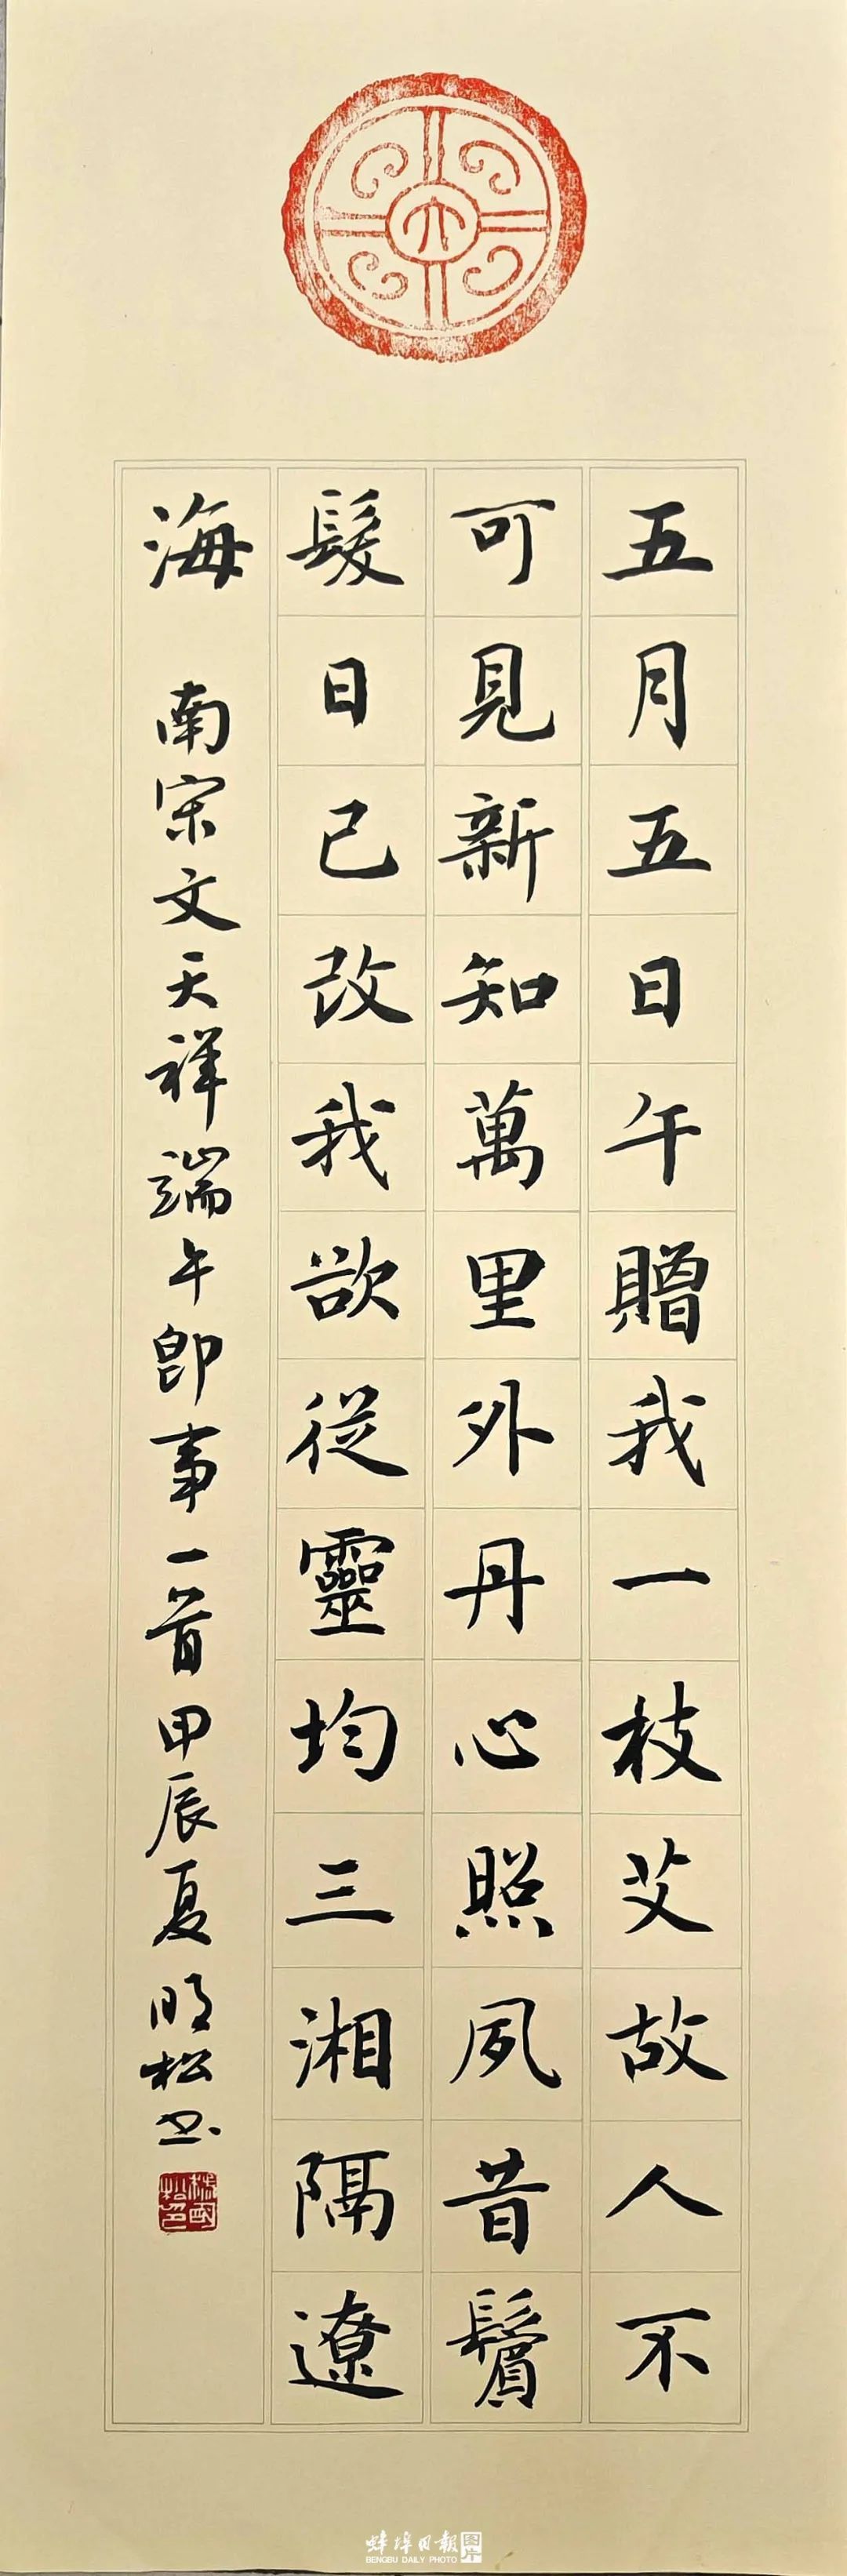 五月五日午贈我一枝艾故人不
可見新知萬里外丹心照夙昔鬢
髮日已改我欲從靈均三湘隔遼
海 南宋文天祥端午即事一首甲辰夏明松书
蚌埠日報 图片
BENGBU DAILY PHOTO